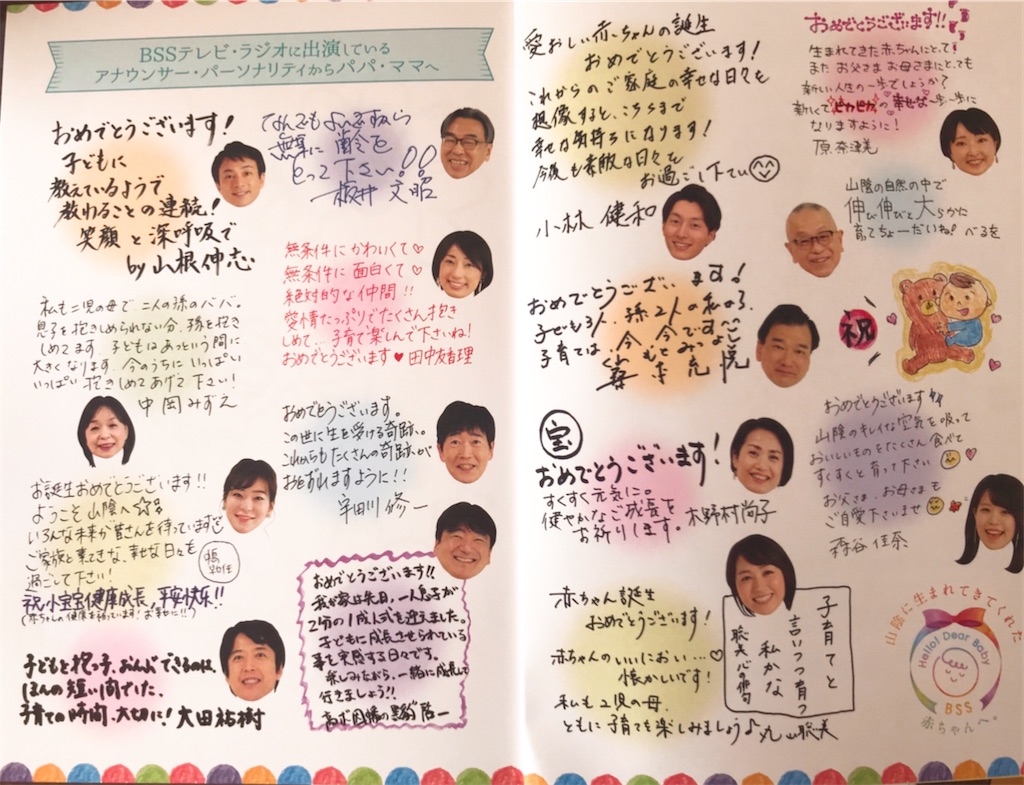 BSSテレビ・ラジオに出演している
アナウンサー・パーソナリティからパパ・ママへ
おめでとうございます!
子どもに
教えているようで
教わることの連続!
笑顔と深呼吸で
by 山根伸志
なんでもよんですから
無事に齢を
とって下さい!!
文昭
無条件にかわいくて♡
無条件に面白くて♡
絶対的な仲間!!
愛情たっぷりでたくさん抱き
しめて、子育て楽しんで下さいね!
おめでとうございます♥田中友香理
私も二児の母で二人の孫のババ。
息子を抱きしめられない分、孫を抱き
しめてます。子どもはあっという間に
大きくなります。今のうちにいっぱい
いっぱい抱きしめてあげて下さい!
中岡みずえ
おめでとうございます。
この世に生を受ける奇跡。
これからもたくさんの奇跡が
おとずれますように!!
宇田川修一
お誕生おめでとうございます!!
ようこそ山陰へ
いろんな未来が皆さんを待っています
ご家族と素てきな、幸せな日々を
過ごして下さい!
祝小宝宝健康成长、平安快乐!!
(赤ちゃんの健康を祈っています!お幸せに!!)
おめでとうございます!!
我が家は先日、一人息子が
2分の1成人式を迎えました。
子どもに成長させられている
事を実感する日々です。
楽しみながら、一緒に成長して
行きましょう!!
子どもを抱っ子、おんぶできるのは、
ほんの短い間でした。
子育ての時間、大切に! 大田祐樹
愛おしい赤ちゃんの誕生
おめでとうございます!
これからのご家庭の幸せな日々を
想像すると、こちらまで
幸せな気持ちになります!
今後も素敵な日々を
お過ごし下さい
小林健和
おめでとうございます!!
生まれてきた赤ちゃんにとって!
またお父さまお母さまにとっても
新しい人生の一歩でしょうか?
新しくてピカピカの幸せな一歩一歩に
なりますように!
原奈津美
山陰の自然の中で
伸び伸びと大らかに
育てちょーだいね! べるを
おめでとうございます!
子ども3人、孫2人の私の
子育ては、今、今です
祝
宝
おめでとうございます!
すくすく元気に。
健やかなご成長を
お祈りします。
木野村尚子
おめでとうございます
山陰のキレイな空気を吸って
おいしいものをたくさん食べて
すくすくと育って下さい
お父さま、お母さまも
ご自愛下さいませ
森谷佳奈
赤ちゃん誕生
おめでとうございます!
赤ちゃんのいいにおい…♡
懐かしいです!
私も2児の母。
ともに子育てを楽しみましょう♪丸山聡美
子育てと
言いつつ育つ
私かな
聡美 心の俳句
山陰に生まれてきてくれた
Hello! Dear Baby
BSS
赤ちゃんへ。